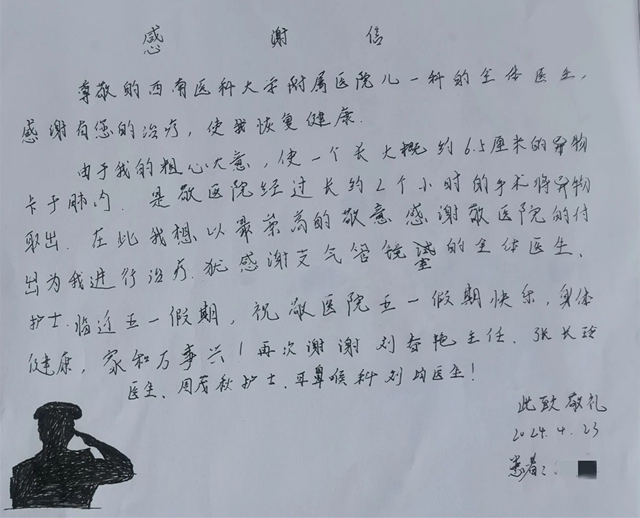 感谢信
尊敬的西南医科大学附属医院儿一科的全体医生,
感谢有您的治疗,使我恢复健康.
由于我的粗心大意,使一个长大概约6.5厘米的异物
卡于肺内.是敬医院经过长约2个小时的手术将异物
取出.在此我想以最崇高的敬意感谢敬医院的付
出为我进行治疗.犹感谢支气管镜室的全体医生、
护士.临近五一假期,祝敬医院五一假期快乐,身体
健康,家和万事兴!再次谢谢刘春艳主任、张长玲
医生、周茂秋护士、耳鼻喉科刘均医生!
此致敬礼
2024.4.23
患者: